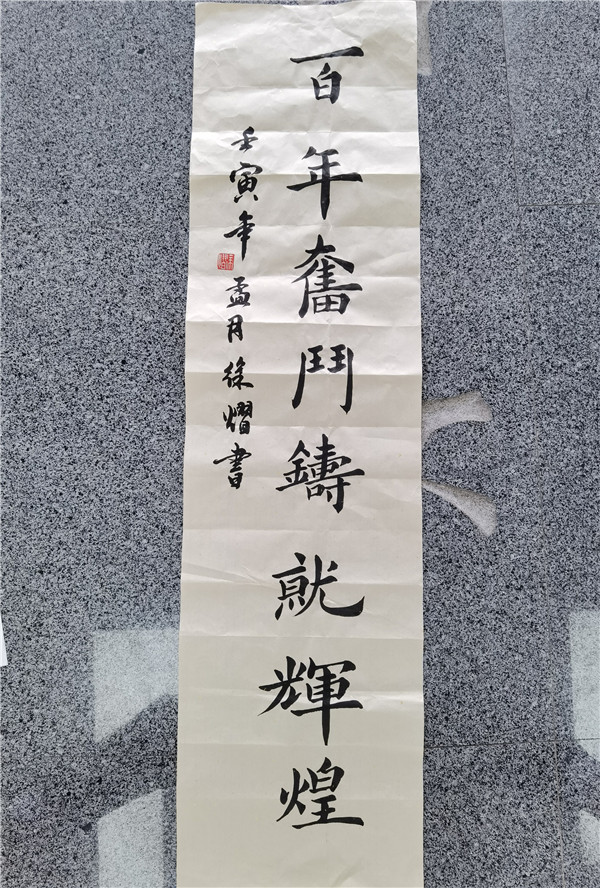 百年奮鬥鑄就輝煌
壬寅年孟月徐熠書